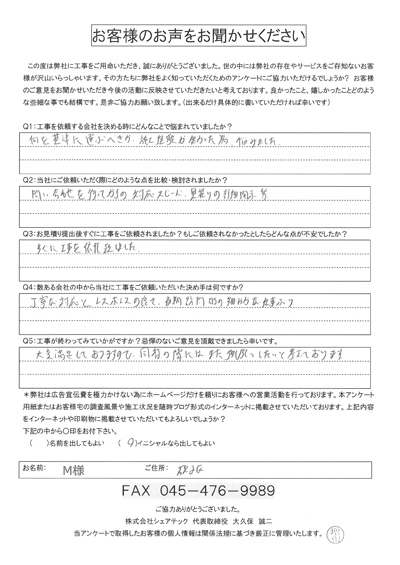 お客様のお声をお聞かせください
この度は弊社に工事をご用命いただき、誠にありがとうございました。世の中には弊社の存在やサービスをご存知ないお客
様が沢山いらっしゃいます。その方たちに弊社をよく知っていただくためのアンケートにご協力いただけるでしょうか? お客様
のご意見をお聞かせいただき今後の活動に反映させていただきたいと考えております。良かったこと、嬉しかったことどのよう
な些細な事でも結構です。是非ご協力お願い致します。(出来るだけ具体的に書いていただければ幸いです)
Q1:工事を依頼する会社を決める時にどんなことで悩まれていましたか?
何を基準に選ぶべきか、決め経験が無かった為、悩みました
Q2:当社にご依頼いただく際にどのような点を比較・検討されましたか?
問い合わせを行ってからの対応スピード、見積りの詳細開示 等
Q3:お見積り提出後すぐに工事をご依頼されましたか?もしご依頼されなかったとしたらどんな点が不安でしたか?
すぐに工事を依頼致しました
Q4:数ある会社の中から当社に工事をご依頼いただいた決め手は何ですか?
丁寧な対応と、レスポンスの良さ、訪問時の細やかな仕事ぶり
Q5:工事が終わってみていかがですか?忌憚のないご意見を頂戴できましたら幸いです。
大変満足しておりますので、の際にはまたお願いしたいと考えております
*弊社は広告宣伝費を極力かけない為にホームページだけを頼りにお客様への営業活動を行っております。本アンケート
用紙またはお客様宅の調査風景や施工状況を随時ブログ形式のインターネットに掲載させていただいております。上記内容
をインターネットや印刷物に掲載させていただいてもよろしいでしょうか?
下記の中から〇印をお付下さい。
( )名前を出してもよい ( )イニシャルなら出してもよい
お名前: M様 ご住所:
FAX 045-476-9989
ご協力ありがとうございました。
株式会社シェアテック 代表取締役 大久保 誠二
当アンケートで取得したお客様の個人情報は関係法規に基づき厳正に管理いたします。